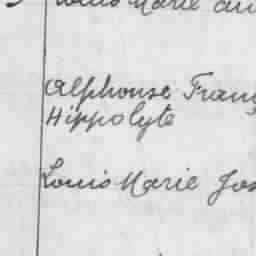 Louis Marie
Alphonse Franç
Hippolyte
Louis Marie Jos